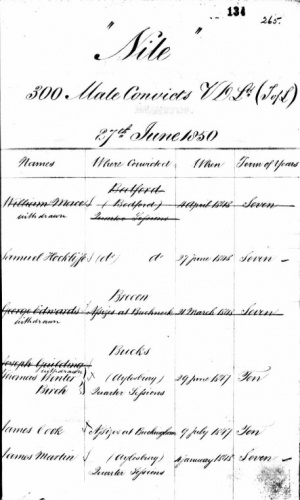 134
265.
"Nile"
300 Male Convicts V D Ld (
27th June 1850
Names Where Convicted When Term of Years
Hertford
William (Bedford) April 1848 Seven
withdrawn Quarter Sessions
Samuel (do do 27 June 1848 Seven –
Brecon
George Edwards Assizes at March 1848 Seven
withdrawn
Bucks
Joseph Goulding
withdrawn
Thomas Winter (Aylesbury) 29 June 1847 Ten
Birch Quarter Sessions
James Cook Assizes at Buckingham 9 July 1847 Ten
James Martin (Aylesbury) January 1848 Seven –
Quarter Sessions